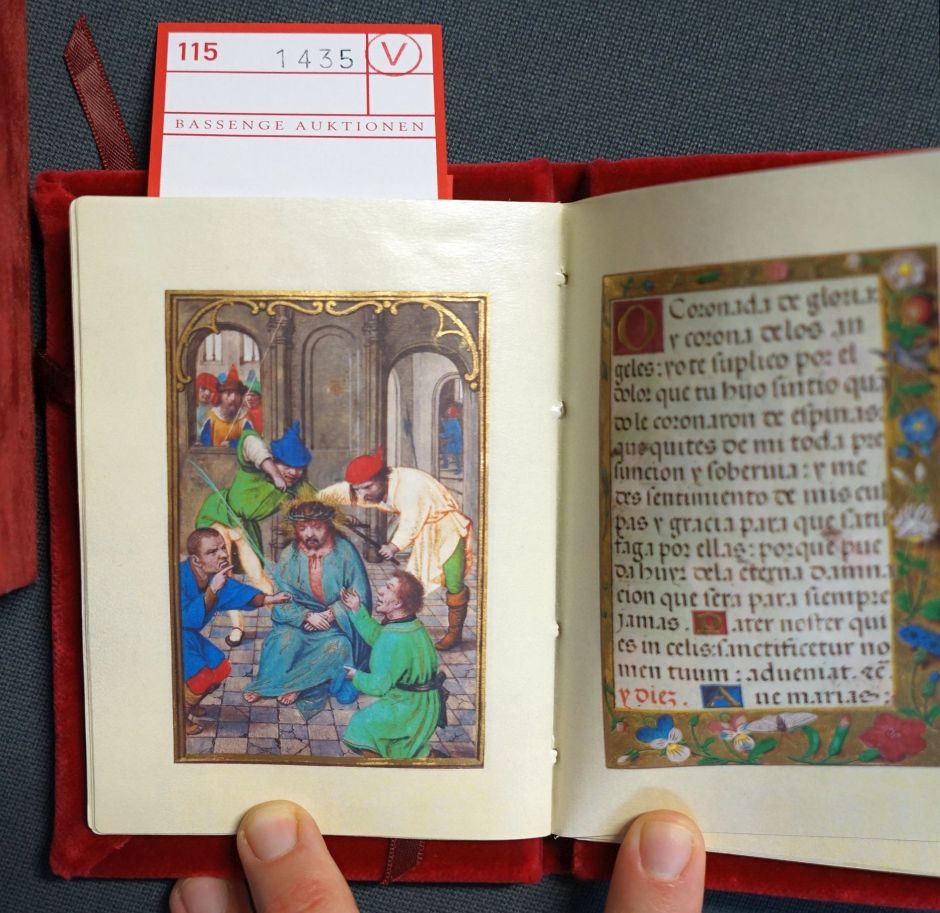 115 1435 V
BASSENGE AUKTIONEN
O Coronada de gloria
y corona delos an
geles: yo te suplico por el
dolor que tu hijo sintio qua
do le coronaron de espinas:
que quites de mi toda pre
suncion y soberuia: y me
des sentimiento de mis cul
pas y gracia para que satis
faga por ellas: porque pue
da huyr dela eterna damna
cion que sera para siempre
jamas. Pater noster qui
es in celis: sanctificetur no
men tuum: adueniat. &c
y Diez. Aue marias: